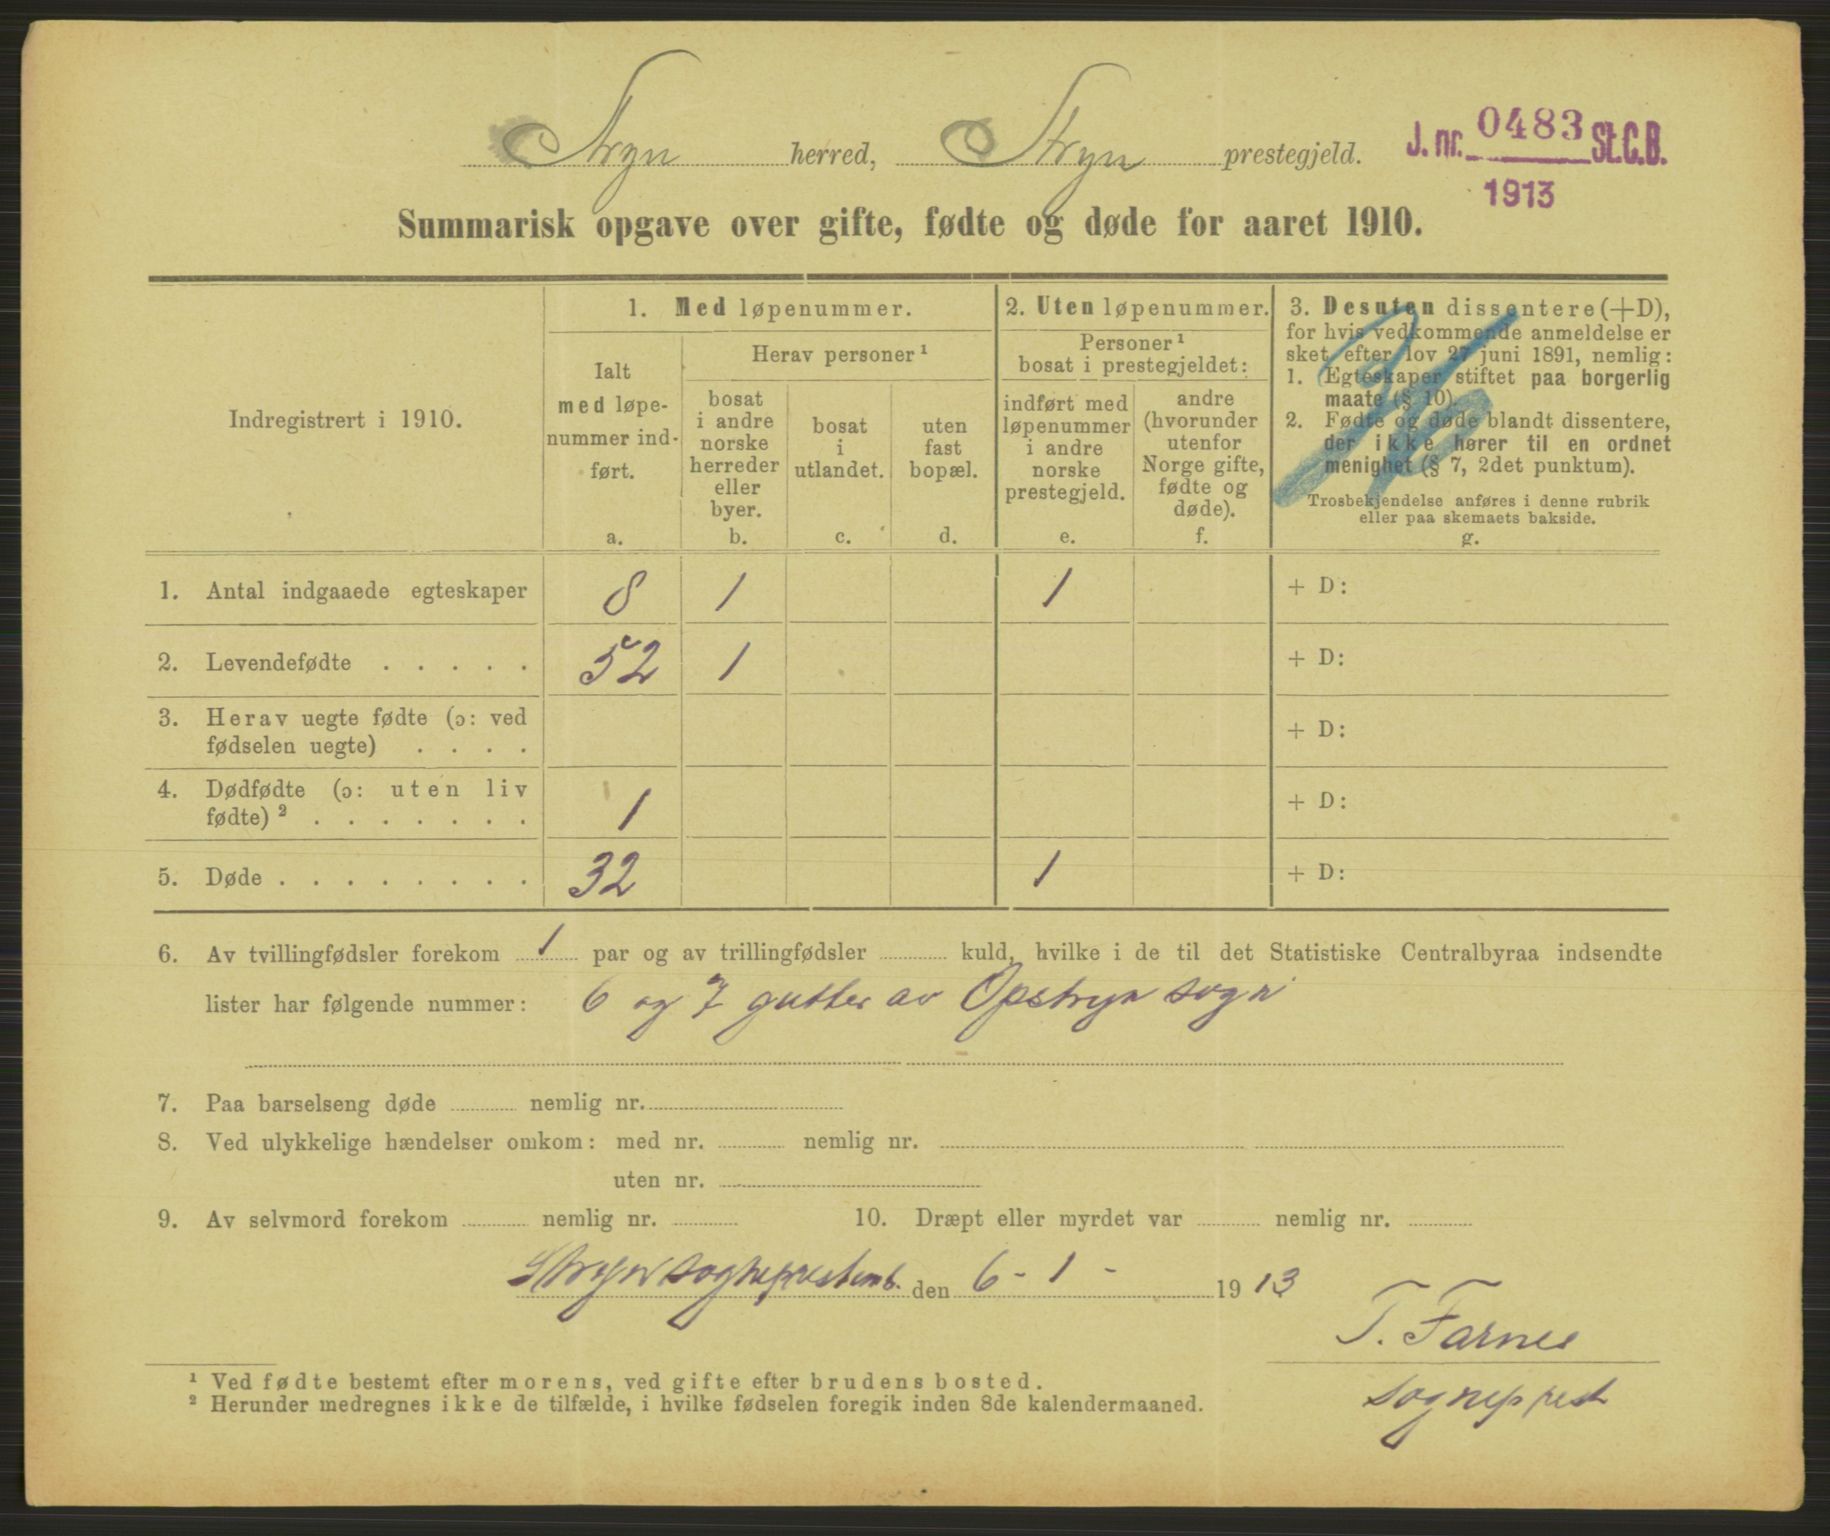 Stryn herred, Stryn prestegjeld.
J. nr. 0483 St. C. B.
1913
Summarisk opgave over gifte, fødte og døde for aaret 1910.
Indregistrert i 1910.
1. Med løpenummer.
Ialt
med løpe-
nummer ind-
ført.
a.
Herav personer ¹
bosat
i andre
norske
herreder
eller
byer.
b.
bosat
i
utlandet.
c.
uten
fast
bopæl.
d.
2. Uten løpenummer.
Personer ¹
bosat i prestegjeldet:
indført med
løpenummer
i andre
norske
prestegjeld.
e.
andre
(hvorunder
utenfor
Norge gifte,
fødte og
døde).
f.
3. Desuten dissentere (+D),
for hvis vedkommende anmeldelse er
sket efter lov 27 juni 1891, nemlig:
1. Egteskaper stiftet paa borgerlig
maate (§ 10).
2. Fødte og døde blandt dissentere,
der ikke hører til en ordnet
menighet (§ 7, 2det punktum).
Trosbekjendelse anføres i denne rubrik
eller paa skemaets bakside.
g.
1. Antal indgaaede egteskaper 8 1 1 + D:
2. Levendefødte . . . . . 52 1 + D:
3. Herav uegte fødte (ɔ: ved
fødselen uegte) . . . . + D:
4. Dødfødte (ɔ: uten liv
fødte) ² . . . . . . . 1 + D:
5. Døde . . . . . . . . . 32 1 + D:
6. Av tvillingfødsler forekom 1 par og av trillingfødsler kuld, hvilke i de til det Statistiske Centralbyraa indsendte
lister har følgende nummer: 6 og 7 gutter av Opstryn sogn
7. Paa barselseng døde nemlig nr.
8. Ved ulykkelige hændelser omkom: med nr. nemlig nr.
uten nr.
9. Av selvmord forekom nemlig nr. 10. Dræpt eller myrdet var nemlig nr.
Stryn sogneprestemb. den 6 - 1 - 1913
T. Farnes
sogneprest
¹ Ved fødte bestemt efter morens, ved gifte efter brudens bosted.
² Herunder medregnes ikke de tilfælde, i hvilke fødselen foregik inden 8de kalendermaaned.